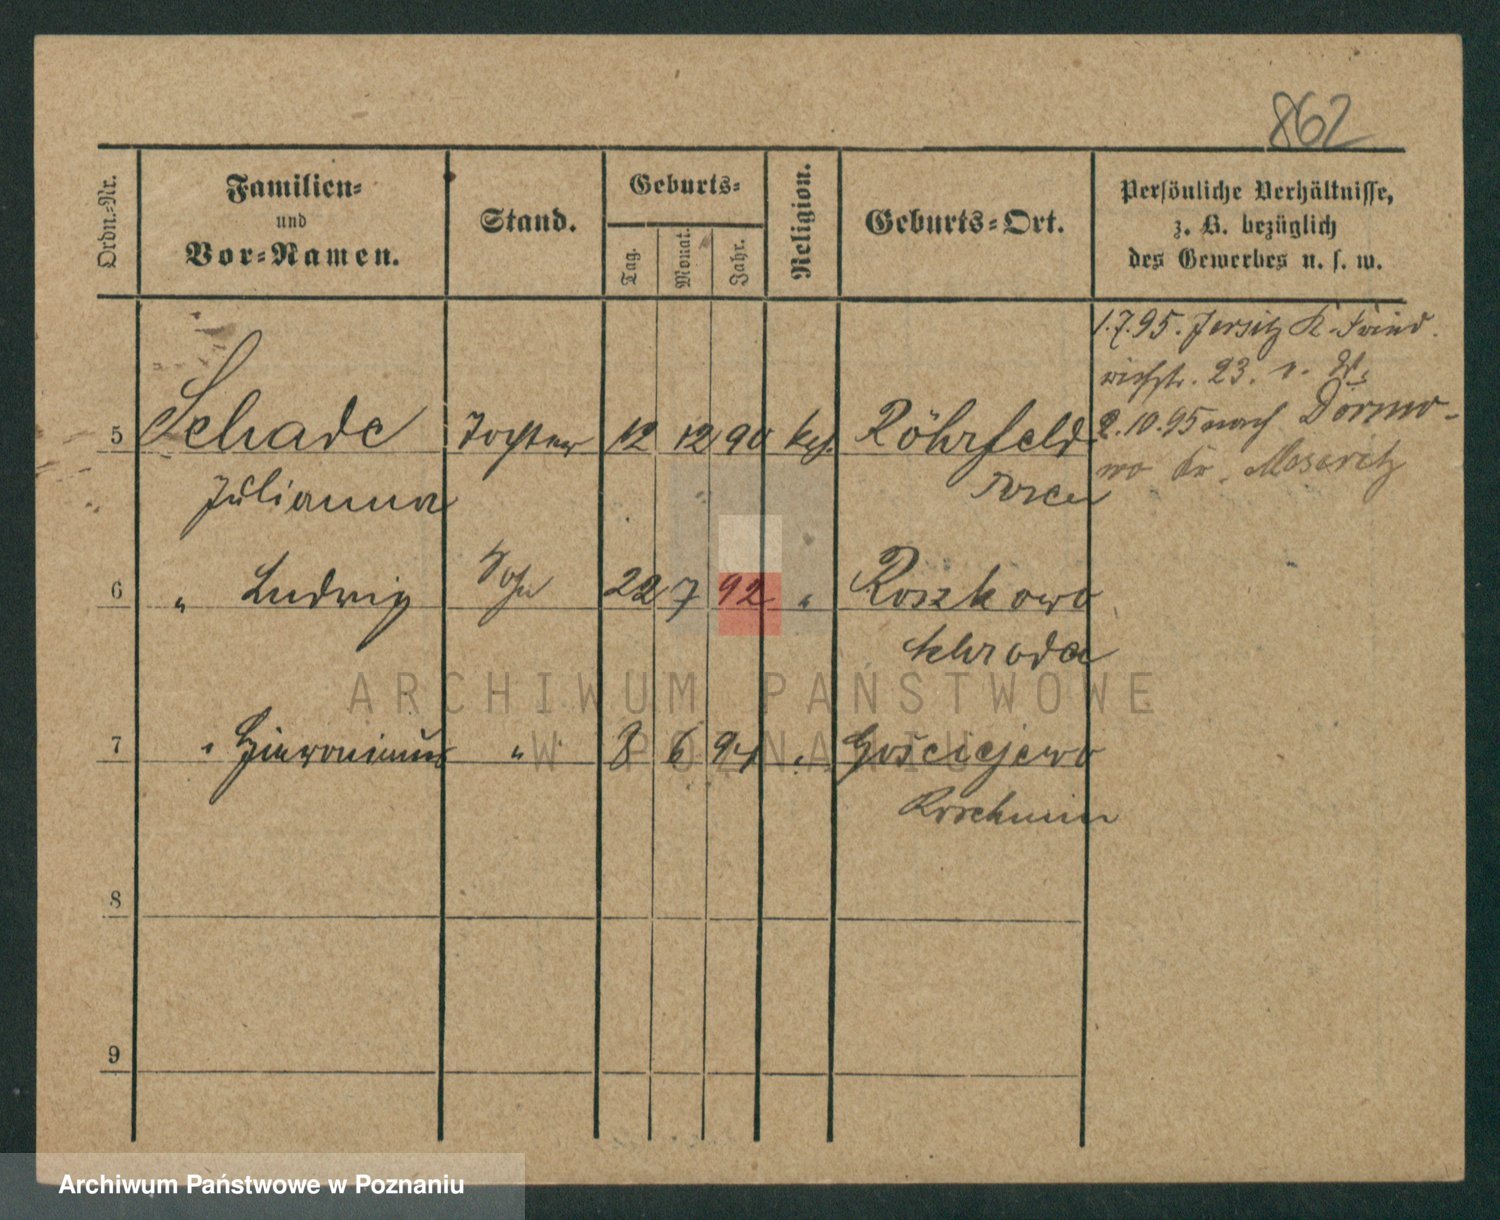 862
Ordn.-Nr.
Familien-
und
Vor-Namen.
Stand.
Geburts-
Tag.
Monat.
Jahr.
Religion.
Geburts-Ort.
Persönliche Verhältnisse,
z. B. bezüglich
des Gewerbes u. s. w.
1.7.95. Jersitz K. Fried
richstr. 23. v. W.
5 Schade Tochter 12 12 90 kath. Röhrfeld 2.10.95 nach Dormo-
Julianna wo Kr. Meseritz
6 " Ludwig Sohn 22 7 92 " Roszkowo
Schroda
7 " Hieronimus " 8 6 94 " Gościejewo
Koschmin
8
9
ARCHIWUM PAŃSTWOWE
W POZNANIU
Archiwum Państwowe w Poznaniu